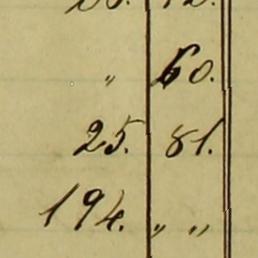 " 60.
25. 81.
194. " "